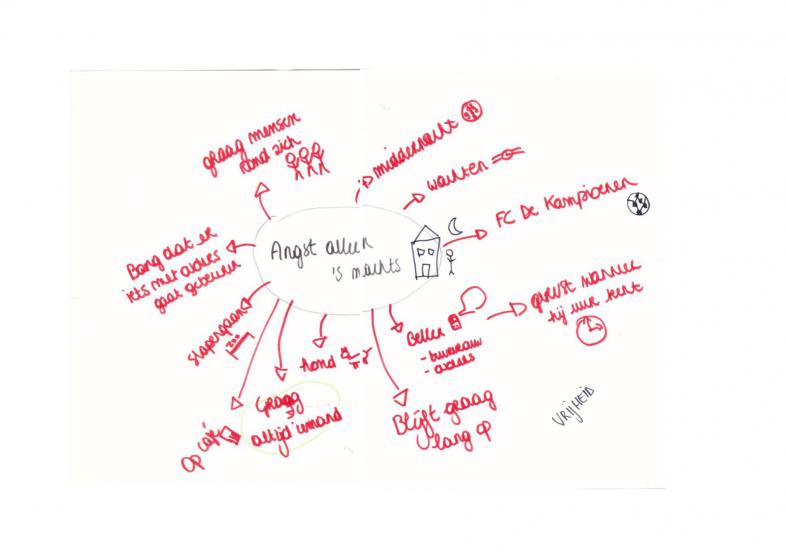 graag mensen
rond zich
middernacht
wachten
FC De Kampioenen
Angst alleen
's nachts
Bang dat er
iets met ouders
gaat gebeuren
slapengaan
zzz
hond
Bellen
- buurvrouw
- ouders
gerust wanneer
hij uur kent
Graag
altijd iemand
Op café
Blijft graag
lang op
VRIJHEID